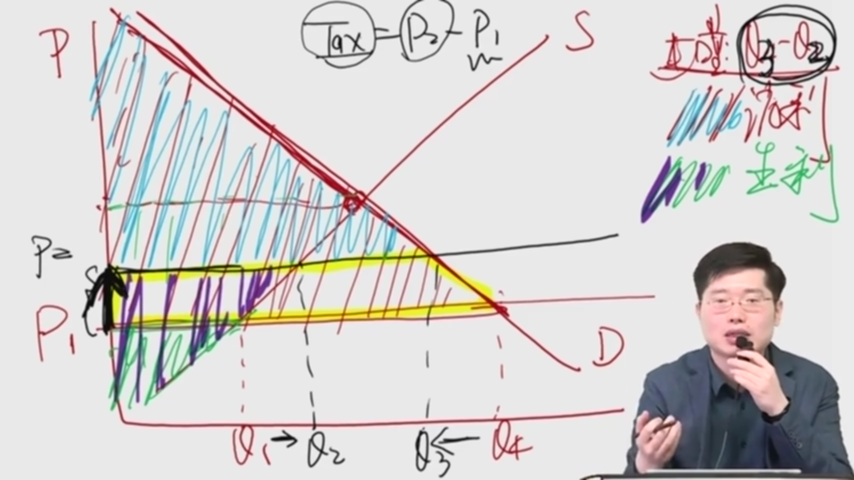 Tax = P₂ - P₁
S
P
Q₃-Q₂
消剩
生剩
P₂
P₁
D
Q₁ → Q₂ Q₃ ← Q₄